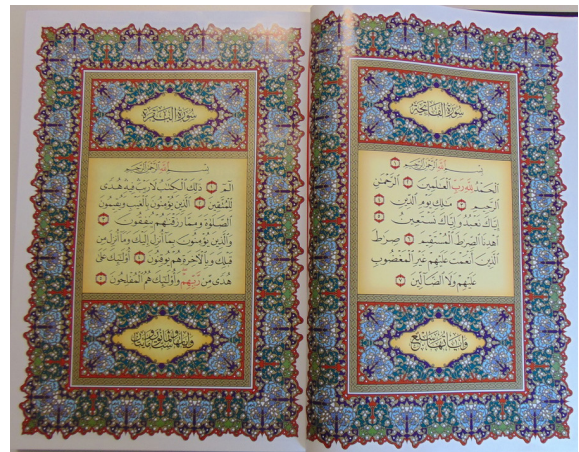 سُورَةُ الفَاتِحَةِ
بِسْمِ اللَّهِ الرَّحْمَٰنِ الرَّحِيمِ ١
الْحَمْدُ لِلَّهِ رَبِّ الْعَٰلَمِينَ ٢ الرَّحْمَٰنِ
الرَّحِيمِ ٣ مَٰلِكِ يَوْمِ الدِّينِ ٤
إِيَّاكَ نَعْبُدُ وَإِيَّاكَ نَسْتَعِينُ ٥
اهْدِنَا الصِّرَٰطَ الْمُسْتَقِيمَ ٦ صِرَٰطَ
الَّذِينَ أَنْعَمْتَ عَلَيْهِمْ غَيْرِ الْمَغْضُوبِ
عَلَيْهِمْ وَلَا الضَّالِّينَ ٧
وَآيَاتُهَا سَبْعٌ
سُورَةُ البَقَرَةِ
بِسْمِ اللَّهِ الرَّحْمَٰنِ الرَّحِيمِ
الٓمٓ ١ ذَٰلِكَ الْكِتَٰبُ لَا رَيْبَ فِيهِ هُدًى
لِلْمُتَّقِينَ ٢ الَّذِينَ يُؤْمِنُونَ بِالْغَيْبِ وَيُقِيمُونَ
الصَّلَوٰةَ وَمِمَّا رَزَقْنَٰهُمْ يُنْفِقُونَ ٣
وَالَّذِينَ يُؤْمِنُونَ بِمَا أُنْزِلَ إِلَيْكَ وَمَا أُنْزِلَ مِنْ
قَبْلِكَ وَبِالْآخِرَةِ هُمْ يُوقِنُونَ ٤ أُولَٰئِكَ عَلَىٰ
هُدًى مِنْ رَبِّهِمْ وَأُولَٰئِكَ هُمُ الْمُفْلِحُونَ ٥